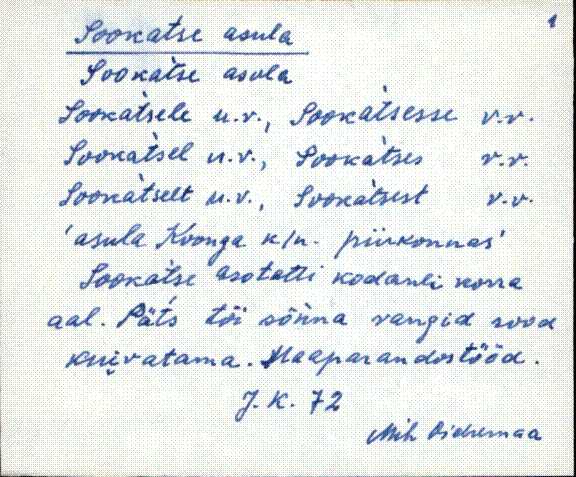 1
Sookatse asula
Sookatse asula
Sookàtsele u.v., Sookàtsesse v.v.
Sookàtsel u.v., Sookàtses v.v.
Sookàtselt u.v., Sookàtsest v.v.
'asula Koonga k/n. piirkonnas'
Sookàtse asotatti kodanli korra
aal. Päts tõi sõ̀nna vangid sood
kuivatama. Maaparandostööd.
J. K. 72
Mih Aidumaa